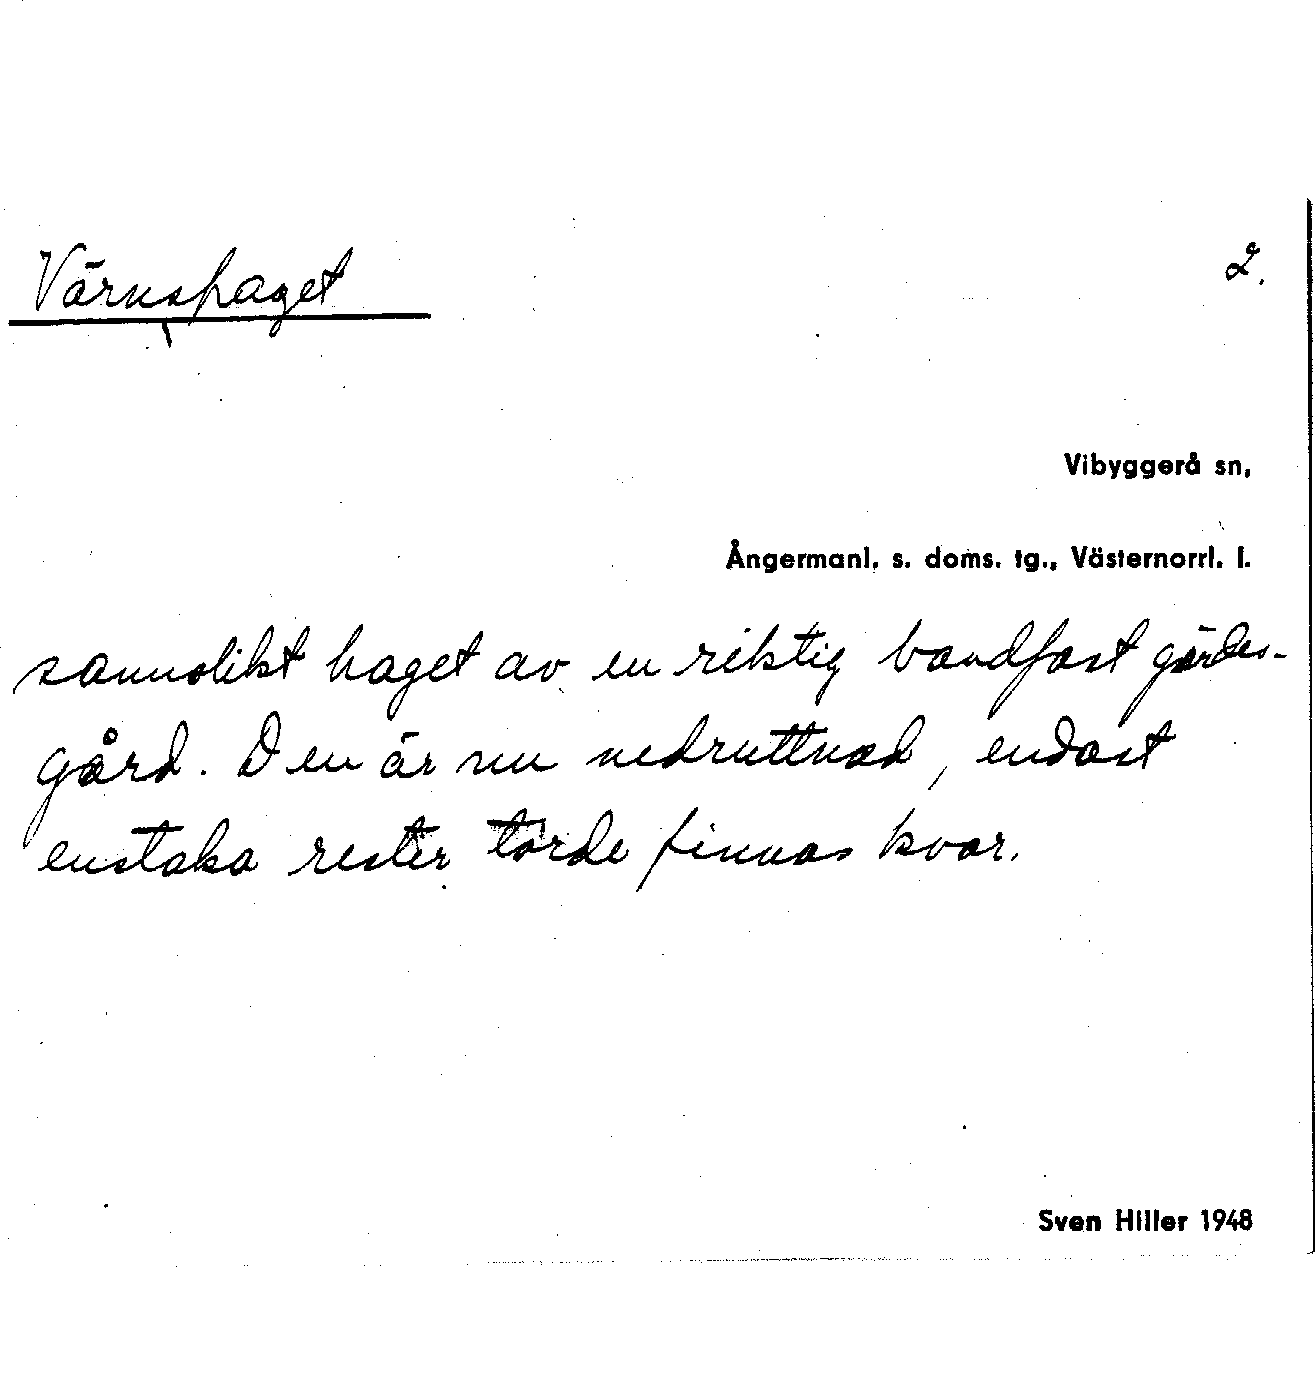 Värnshaget
2.
Vibyggerå sn,
Ångermanl. s. doms. tg., Västernorrl. l.
sannolikt haget av en riktig bandfast gärdes-
gård. Den är nu nedruttnad, endast
enstaka rester torde finnas kvar.
Sven Hiller 1948